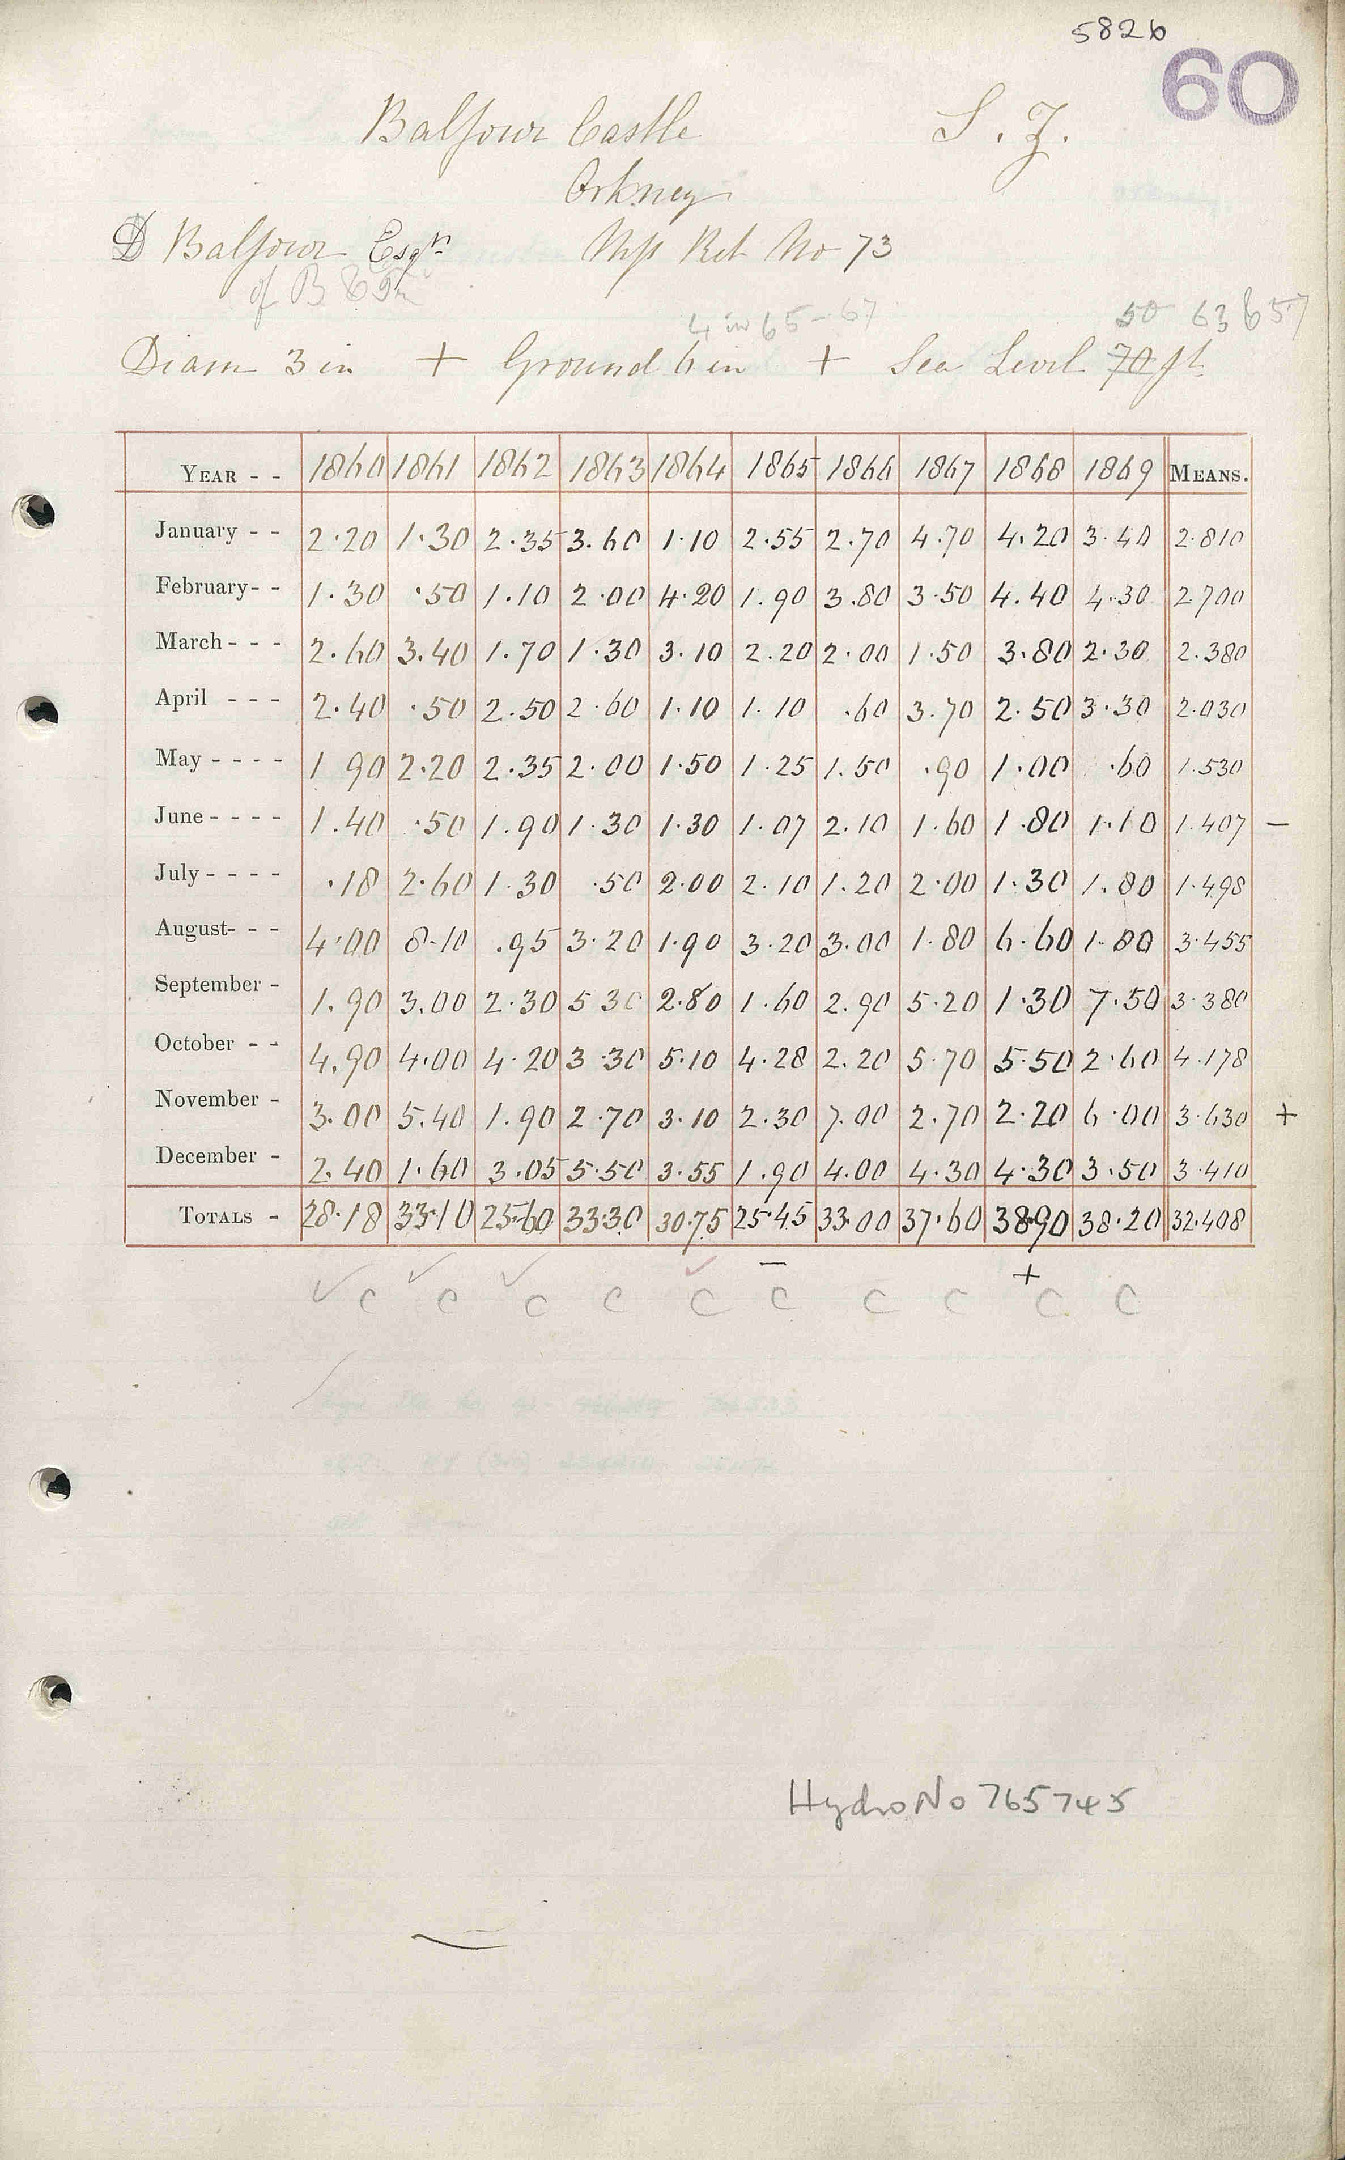 5826
60
Balfour Castle S. Z.
Orkney
D Balfour Esqr Mss Ret No 73
of B &
4 in 65-67 50 63 657
Diam 3 in + Ground 6 in + Sea Level 70 ft
YEAR - - 1860 1861 1862 1863 1864 1865 1866 1867 1868 1869 MEANS.
January - - 2.20 1.30 2.35 3.60 1.10 2.55 2.70 4.70 4.20 3.40 2.810
February - - 1.30 .50 1.10 2.00 4.20 1.90 3.80 3.50 4.40 4.30 2.700
March - - - 2.60 3.40 1.70 1.30 3.10 2.20 2.00 1.50 3.80 2.30 2.380
April - - - 2.40 .50 2.50 2.60 1.10 1.10 .60 3.70 2.50 3.30 2.030
May - - - - 1 90 2.20 2.35 2.00 1.50 1.25 1.50 .90 1.00 .60 1.530
June - - - - 1.40 .50 1.90 1.30 1.30 1.07 2.10 1.60 1.80 1.10 1.407 —
July - - - - .18 2.60 1.30 .50 2.00 2.10 1.20 2.00 1.30 1.80 1.498
August- - - 4.00 8.10 .95 3.20 1.90 3.20 3.00 1.80 6.60 1.80 3.455
September - 1.90 3.00 2.30 5 30 2.80 1.60 2.90 5.20 1.30 7.50 3.380
October - - 4.90 4.00 4.20 3.30 5.10 4.28 2.20 5.70 5.50 2.60 4.178
November - 3.00 5.40 1.90 2.70 3.10 2.30 7.00 2.70 2.20 6.00 3.630 +
December - 2.40 1.60 3.05 5.50 3.55 1.90 4.00 4.30 4.30 3.50 3.410
TOTALS - 28.18 33.10 25.60 33.30 30.75 25.45 33.00 37.60 38.90 38.20 32.408
— +
✓ c ✓ c ✓ c c ✓ c c c c c c
Hydro No 765745